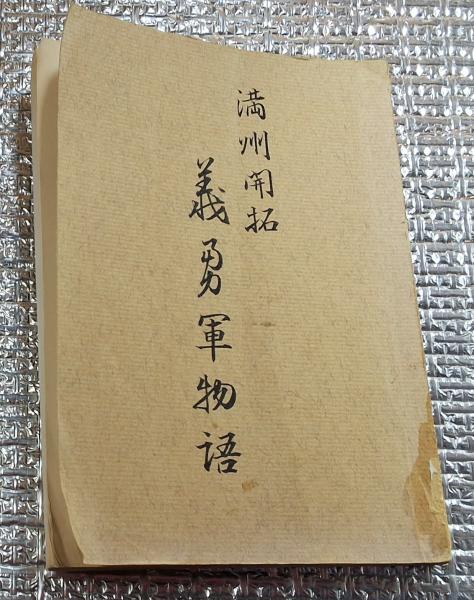 満州開拓
義勇軍物語